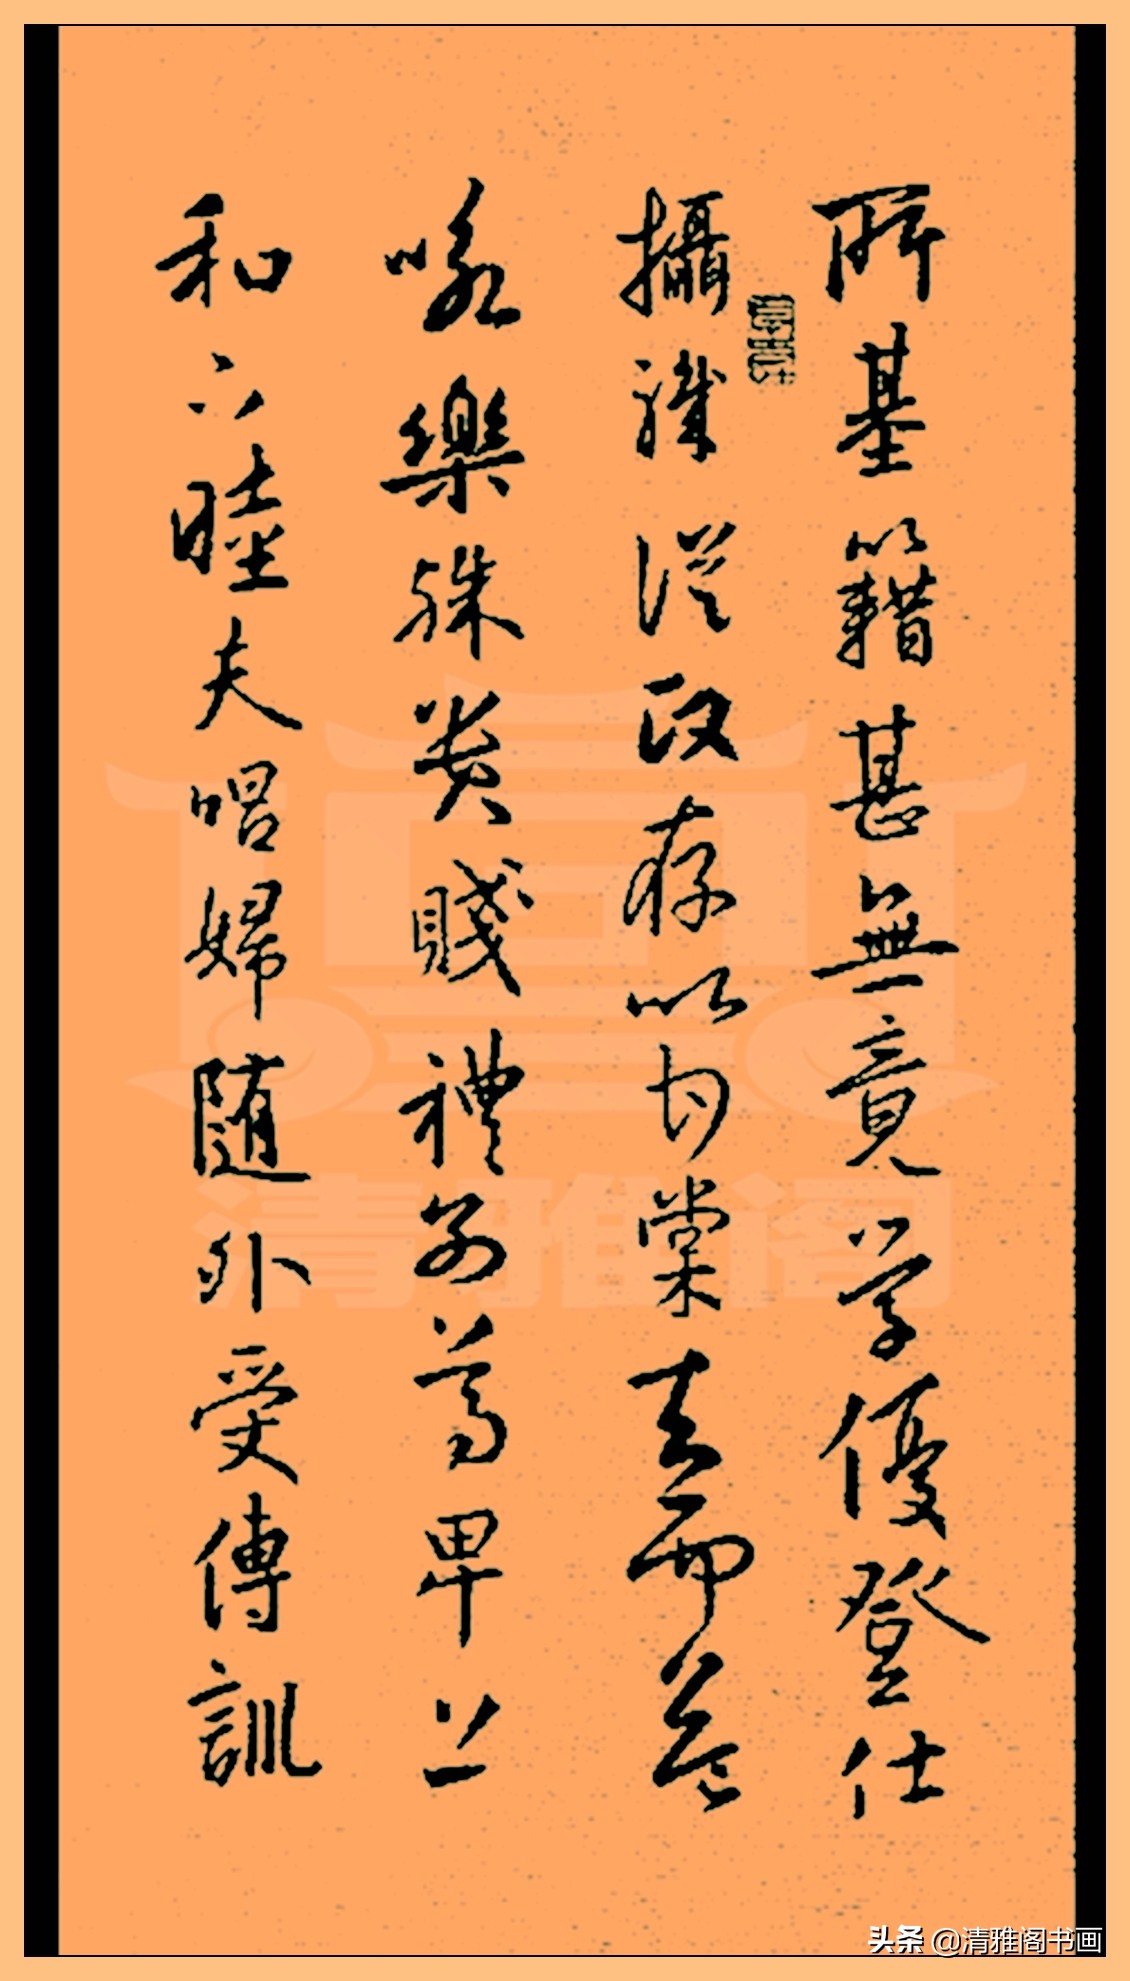 所基籍甚無竟学優登仕
攝職從政存以甘棠去而益
咏樂殊贵賤禮別尊卑上
和下睦夫唱婦随外受傅訓
清雅阁
头条 @清雅阁书画